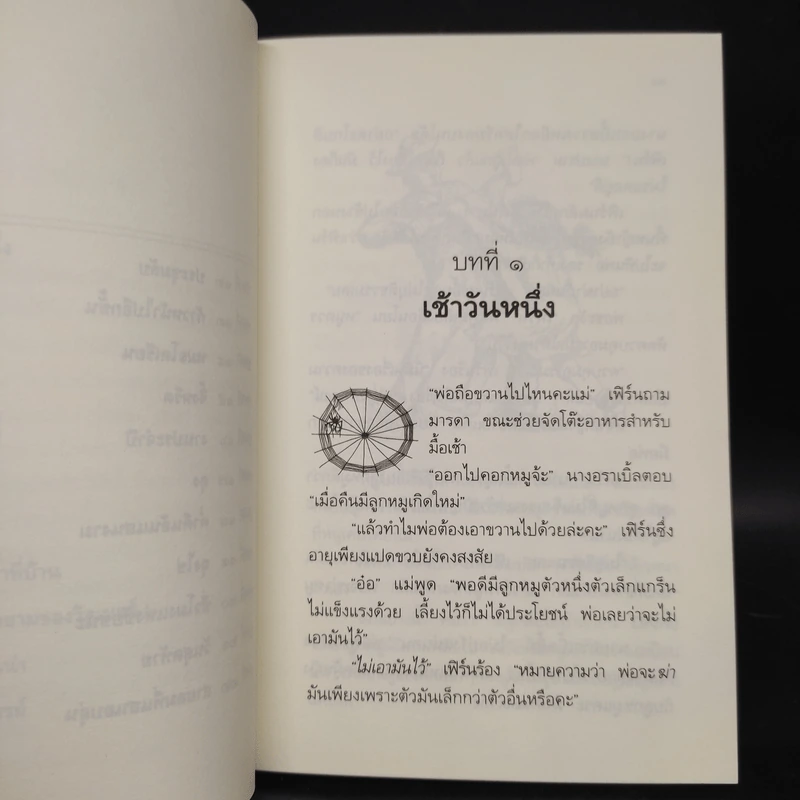 บทที่ ๑
เช้าวันหนึ่ง
“พ่อถือขวานไปไหนคะแม่” เฟิร์นถาม
มารดา ขณะช่วยจัดโต๊ะอาหารสำหรับ
มื้อเช้า
“ออกไปคอกหมูจ้ะ” นางอราเบิ้ลตอบ
“เมื่อคืนมีลูกหมูเกิดใหม่”
“แล้วทำไมพ่อต้องเอาขวานไปด้วยล่ะคะ” เฟิร์นซึ่ง
อายุเพียงแปดขวบยังคงสงสัย
“อ๋อ” แม่พูด “พอดีมีลูกหมูตัวหนึ่งตัวเล็กแกร็น
ไม่แข็งแรงด้วย เลี้ยงไว้ก็ไม่ได้ประโยชน์ พ่อเลยว่าจะไม่
เอามันไว้”
“ไม่เอามันไว้” เฟิร์นร้อง “หมายความว่า พ่อจะฆ่า
มันเพียงเพราะตัวมันเล็กกว่าตัวอื่นหรือคะ”